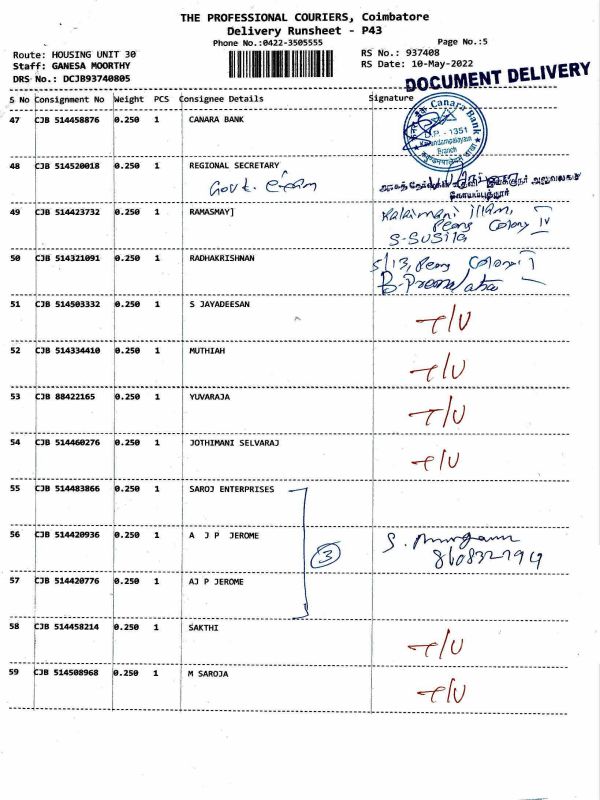 THE PROFESSIONAL COURIERS, Coimbatore
Delivery Runsheet - P43
Phone No.:0422-3505555
Page No.:5
Route: HOUSING UNIT 30
RS No.: 937408
Staff: GANESA MOORTHY
RS Date: 10-May-2022
DRS No.: DCJB93740805
DOCUMENT DELIVERY
S No Consignment No Weight PCS Consignee Details Signature
47 CJB 514458876 0.250 1 CANARA BANK
Canara Bank
D.P. - 1351
Branch
48 CJB 514520018 0.250 1 REGIONAL SECRETARY
Govt.
கோயம்புத்தூர்
49 CJB 514423732 0.250 1 RAMASMAY]
Kalaimani illam,
Peons Colony IV
S-SUSila
50 CJB 514321091 0.250 1 RADHAKRISHNAN
5/13, Peons Colony
B-Premalatha
51 CJB 514503332 0.250 1 S JAYADEESAN
T/U
52 CJB 514334410 0.250 1 MUTHIAH
T/U
53 CJB 88422165 0.250 1 YUVARAJA
T/U
54 CJB 514460276 0.250 1 JOTHIMANI SELVARAJ
T/U
55 CJB 514483866 0.250 1 SAROJ ENTERPRISES
56 CJB 514420936 0.250 1 A J P JEROME
3
S. Murugann
57 CJB 514420776 0.250 1 AJ P JEROME
58 CJB 514458214 0.250 1 SAKTHI
T/U
59 CJB 514508968 0.250 1 M SAROJA
T/U